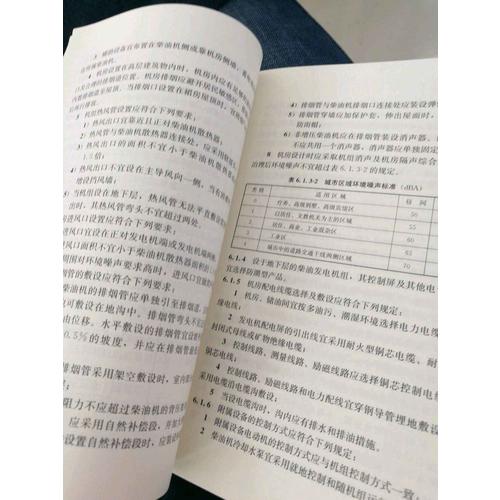 3 辅助设备宜布置在柴油机侧或靠机房侧墙,
4 机房设置在高层建筑物内时,机房内应有足够
口及合理的排烟道位置。机房排烟应避开居民敏感区,
5 机组热风管设置应符合下列要求:
1)热风出口宜靠近且正对柴油机散热器;
2)热风管与柴油机散热器连接处,应采用软
3)热风出口的面积不宜小于柴油机散热器
1.5倍;
4)热风出口不宜设在主导风向一侧,当有困
增设挡风墙;
5)当机组设在地下层,热风管无法平直敷设
时,其热风管弯头不宜超过两处。
进风口宜设在正对发电机端或发电机端两
进风口面积不宜小于柴油机散热器面积的
周围对环境噪声要求高时,进风口宜做
排烟管的敷设应符合下列要求:
机组的排烟管应单独引至排烟道,
可敷设在地沟中。排烟管弯头不
由位移。水平敷设的排烟管宜设
0.5%的坡度,并应在排烟管
排烟管采用架空敷设时,室内
阻力不应超过柴油机的背压
应采用自然补偿段,并
设置自然补偿段时,应装设
4)排烟管与柴油机排烟口连接处应装设弹
5)排烟管穿墙应加保护套,伸出屋面时,
防雨帽;
6)非增压柴油机应在排烟管装设消声器。
不应共用一个消声器,消声器应单独固定
8 机房设计时应采取机组消声及机房隔声综合
治理后环境噪声不宜超过表 6.1.3-2
表 6.1.3-2 城市区域环境噪声标准 (dBA)
类别 适用区域 昼间
0 疗养、高级别墅、高级宾馆区 50
1 以居住、文教机关为主的区域 55
2 居住、商业、工业混杂区 60
3 工业区 65
4 城市中的道路交通干线两侧区域 70
6.1.4 设于地下层的柴油发电机组,其控制屏及其他电
宜选择防潮型产品。
6.1.5 机房配电线缆选择及敷设应符合下列规定:
1 机房、储油间宜按多油污、潮湿环境选择电力电缆
缘电线;
2 发电机配电屏的引出线宜采用耐火型铜芯电缆、耐
封闭式母线或矿物绝缘电缆;
3 控制线路、测量线路、励磁线路应选择铜芯控制电缆
铜芯电线;
4 控制线路、励磁线路和电力配线宜穿钢导管埋地敷设
采用电缆沿电缆沟敷设;
5 当设电缆沟时,沟内应有排水和排油措施。
6.1.6 附属设备的控制方式应符合下列规定:
1 附属设备电动机的控制方式应与机组控制方式一致;
2 柴油机冷却水泵宜采用就地控制和随机组运